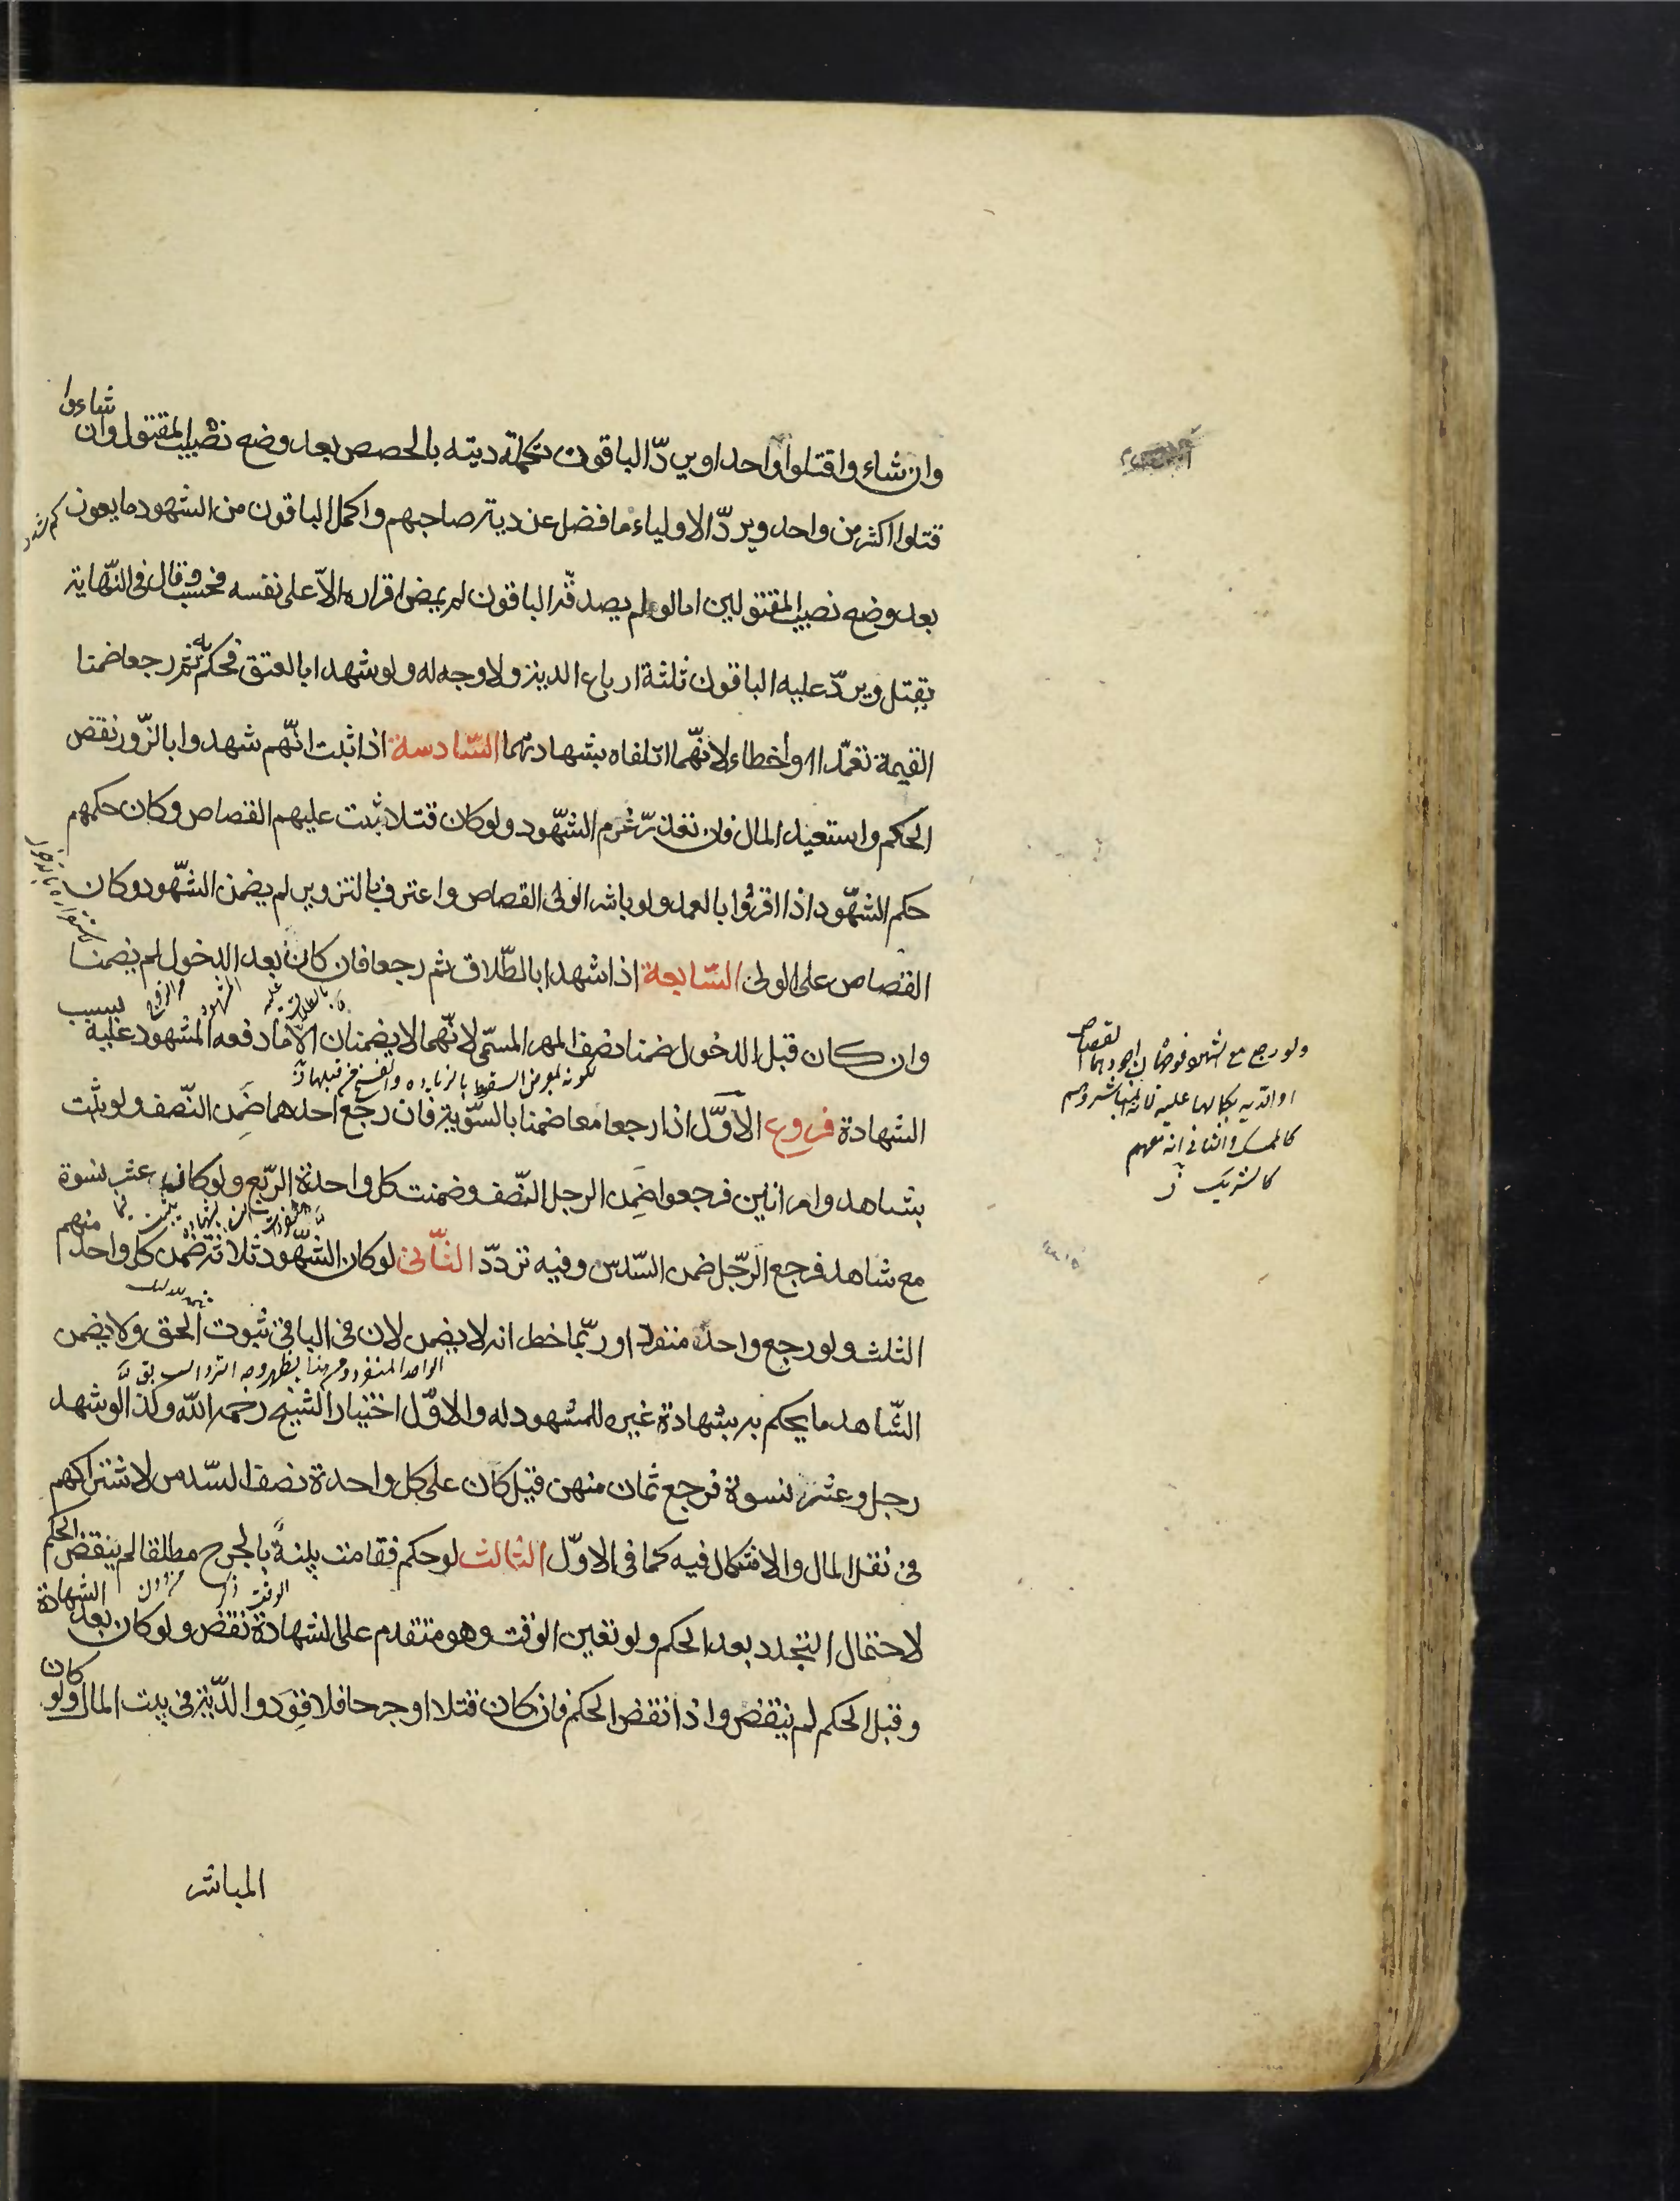 وان شاءوا قتلوا واحدا ويردّ الباقون تكملة ديته بالحصص بعد وضع نصيب المقتول وان شاءوا
قتلوا اكثر من واحد ويردّ الاولياء ما فضل عن دية صاحبهم واكمل الباقون من الشهود ما يعوز
بعد وضع نصيب المقتولين اما لو لم يصدقه الباقون لم يمض اقراره الاّ على نفسه فحسب وقال فى النّهاية
يقتل ويردّ عليه الباقون ثلثة ارباع الدية ولا وجه له ولو شهدا بالعتق فحكم به ثم رجعا ضمنا
القيمة تعمّدا او أخطاء لانّهما اتلفاه بشهادتهما السّادسة اذا ثبت انّهم شهدوا بالزّور نقض
الحكم واستعيد المال فان تعذّر غرم الشّهود ولو كان قتلا ثبت عليهم القصاص وكان حكمهم
حكم الشّهود اذا اقرّوا بالعمد ولو باشر الولى القصاص واعترف بالتزوير لم يضمن الشّهود وكان
القصاص على الولى السّابعة اذا شهدا بالطّلاق ثم رجعا فان كان بعد الدخول لم يضمنا
وان كان قبل الدخول ضمنا نصف المهر المسمّى لانّهما لا يضمنان الاّ ما دفعه المشهود عليه بسبب
لكونه لمعرض السقوط بالرده والفسخ من قبلها
الشهادة فروع الاوّل اذا رجعا معا ضمنا بالسّوية فان رجع احدهما ضمن النّصف ولو ثبت
بشاهد وامراتين فرجعوا ضمن الرجل النّصف وضمنت كل واحدة الرّبع ولو كان عشر نسوة
مع شاهد فرجع الرّجل ضمن السّدس وفيه تردّد الثّانى لو كان الشّهود ثلاثة ضمن كل واحد منهم
الثلث ولو رجع واحد منفردا وربّما خطر انه لا يضمن لان فى الباقى ثبوت الحق ولا يضمن
الشّاهد ما يحكم به بشهادة غيره للمشهود له والاوّل اختيار الشيخ رحمه اللّه وكذا لو شهد
رجل وعشر نسوة فرجع ثمان منهن قيل كان على كل واحدة نصف السّدس لاشتراكهم
فى نقل المال والاشكال فيه كما فى الاوّل الثالث لو حكم فقامت بينةً بالجرح مطلقا لم ينقض الحكم
لاحتمال التجدد بعد الحكم ولو تعين الوقت وهو متقدم على الشهادة نقض ولو كان بعد الشهادة
وقبل الحكم لم ينقض واذا نقض الحكم فان كان قتلا او جرحا فلا قود والدّية فى بيت المال ولو كان
المباشر
ولو رجع مع الشهود
كالممسك والثانى انه معهم
كالشريك